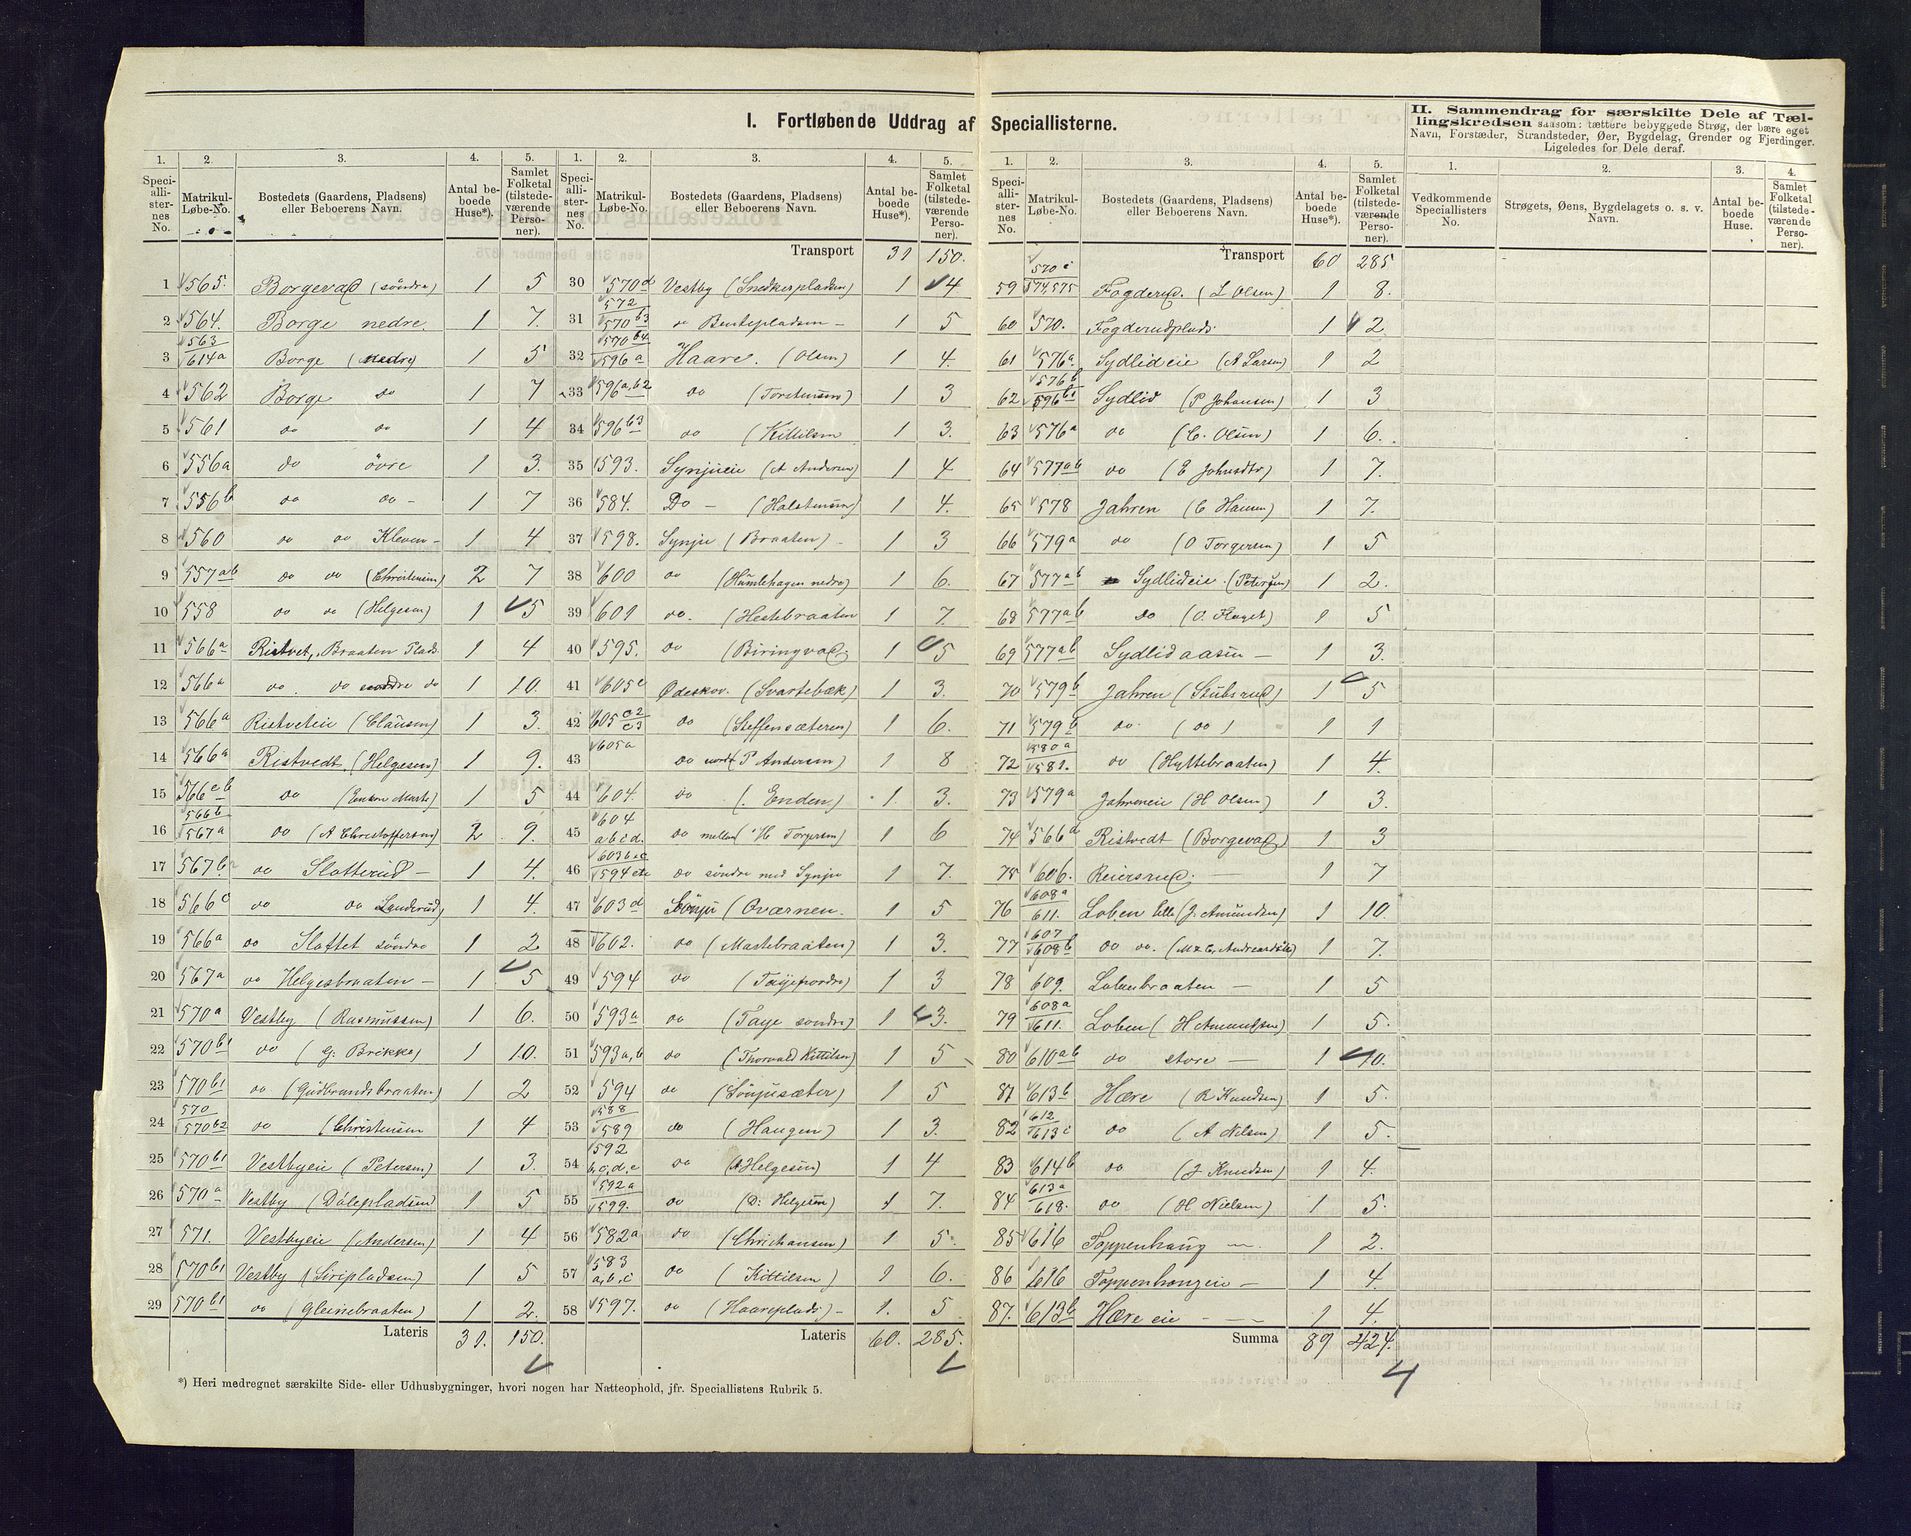 I. Fortløbende Uddrag af Speciallisterne.
II. Sammendrag for særskilte Dele af Tællingskredsen saasom: tættere bebyggede Strøg, der bære eget
Navn, Forstæder, Strandsteder, Øer, Bygdelag, Grender og Fjerdinger.
Ligeledes for Dele deraf.
1. 2. 3. 4. 5.
Speciallisternes No. Matrikul-Løbe-No. Bostedets (Gaardens, Pladsens) eller Beboerens Navn. Antal beboede Huse*). Samlet Folketal (tilstedeværende Personer).
1 565. Borgevad (søndre) 1 5
2 564. Borge nedre. 1 7.
3 563 614a Borge (nedre) 1 5
4 562 Borge do 1 7
5 561 do do 1 4
6 556a do övre 1 3.
7 556b do do - 1 7
8 560 do do Kleven - 1 4
9 557ab do do (Christensen) 2 7
10 558 do do (Helgesen) 1 5
11 566a Ristvet, Braaten Plads 1 4
12 566a do. do do 1 10.
13 566a Ristveteie (Clausen) 1 3.
14 566a Ristvedt. (Helgesen) 1 9.
15 do 1 5
16 566b 567a do (A Christoffersen) 2 9.
17 567b do Slotterud - 1 4.
18 566c do do Landerud 1 4.
19 566a do Slottet søndre 1 2
20 567a do Helgesbraaten - 1 5
21 570a Vestby (Rasmussen) 1 6.
22 570b1 do (G. Brikke) 1 10.
23 570b1 do (Gudbrandsbraaten) 1 2
24 570 570b2 do (Christensen 1 4
25 570b1 Vestbyeie (Petersen) 1 3.
26 570a Vestby (Dölepladsen) 1 5
27 571. Vestbyeie (Andersen) 1 4
28 570b1 Vestby (Siripladsen) 1 5
29 570b1 do (Gleinebraaten) 1 2.
Lateris 31. 150.
Transport 31 150.
30 570d Vestby (Snedkerpladsen) 1 4
31 572 570b3 do Bentepladsen - 1 5
32 570b4 596a Haare. (Olsen) 1 4.
33 596a,b2 do (Torstensen) 1 3
34 596b3 do (Kittilsen 1 3.
35 593. Synjueie (A Andersen) 1 4
36 584. Do - (Halstensen) 1 4.
37 598. Synju (Braaten) - 1 3
38 600 do (Humlehagen nedre) 1 6.
39 601 do. (Hestebraaten 1 7.
40 595. do (Biringvad. 1 5
41 605c Ødeskov. (Svartebæk) 1 3.
42 605c2 c3 do (Steffensæteren) 1 6.
43 605a do (P Andersen) 1 8
44 604. do (. Enden) 1 3.
45 604 a b c d. do mellem (H Torgersen) 1 6
46 do søndre med Synju 1 7.
47 603d Sönju (Qværnen. 1 5
48 602. do (Mastebraaten) 1 3.
49 594 do (Tøjenordre) 1 3
50 593a do (Taje søndre) 1 3.
51 593a,b do (Thorvald Kittilsen) 1 5
52 594 do (Sönjusæter) 1 5
53 588 589 do (Haugen) 1 3.
54 592 b,c,d,e do (A Helgesen) 1 4
55 592a 599. do (D: Helgesen) 1 7.
56 582a do (Christiansen) 1 5
57 583 a,b,c do (Kittilsen) 1 6.
58 597. do (Haareplads) - 1. 5
Lateris 60. 285.
Transport 60 285
59 570c 574,575 Fogderud. (L Olsen) 1 8.
60 570. Fogderudplads. 1 2.
61 576a Sydlideie (A Larsen) 1 2
62 576b 596b1 Sydlid (P Johansen) 1 3
63 576a do (C. Olsen) 1 6.
64 577ab do (E Johnsdtr) 1 7.
65 578 Jahren (C Hansen) 1 7.
66 579a do (O Torgersen) 1 5
67 577ab Sydlideie. (Petersen) 1 2.
68 577ab Do (O. Flaget) 1 5
69 577ab Sydlidaasen - 1 3.
70 579b Jahren (Stubsrud) 1 5
71 579b do (do) 1 1
72 580a 581. do (Hyttebraaten) 1 4.
73 579a Jahreneie (H Olsen) 1 3.
74 566d Ristvedt (Borgevad) 1 3
75 606. Reiersrud. - 1 7
76 608a 611. Loben lille (J. Amundsen) 1 10.
77 607 608b do do. 1 7.
78 609. Lobenbraaten - 1 5
79 608a 611. Loben (H Amundsen) 1 5.
80 610ab do store - 1 10.
81 613b Hære (R Knudsen) 1 5.
82 612 613c do (A Nilsen) 1 5.
83 614b do (J Knudsen) 1 4.
84 613a 618. do (H Nielsen) 1 5.
85 616 Toppenhaug - 1 2.
86 616 Toppenhaugeie - 1 4.
87. 613b Hære eie - - - 1 4.
Summa 89 424.
4
1. 2. 3. 4.
Vedkommende Speciallisters No. Strøgets, Øens, Bygdelagets o. s. v. Navn. Antal beboede Huse. Samlet Folketal (tilstedeværende Personer).
*) Heri medregnet særskilte Side- eller Udhusbygninger, hvori nogen har Natteophold, jfr. Speciallistens Rubrik 5.